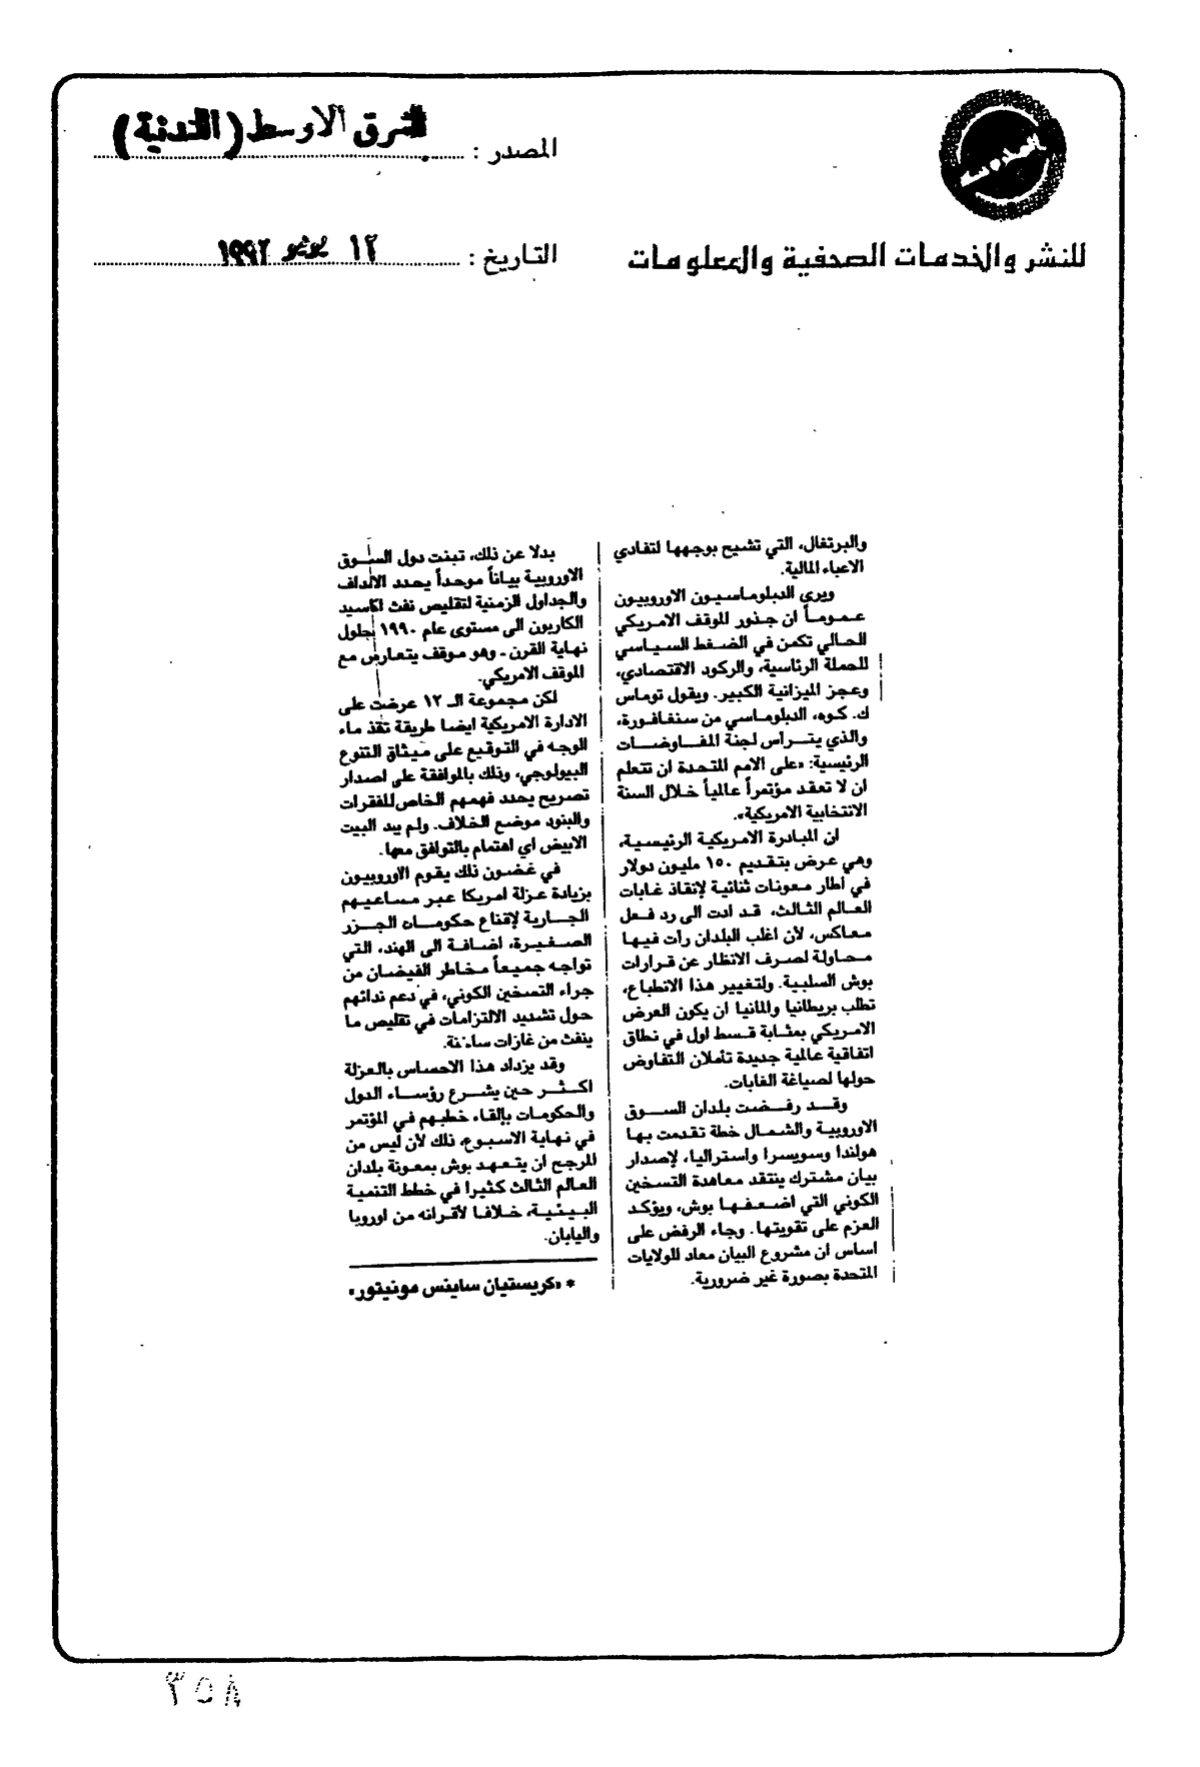 المصدر : الشرق الاوسط (اللندنية)
للنشر والخدمات الصحفية والمعلومات
التاريخ : ١٢ يونيو ١٩٩٢
والبرتغال، التي تشيح بوجهها لتفادي
الاعباء المالية.
ويرى الدبلوماسيون الاوروبيون
عموماً ان جذور الموقف الامريكي
الحالي تكمن في الضغط السياسي
للحملة الرئاسية، والركود الاقتصادي،
وعجز الميزانية الكبير. ويقول توماس
ك. كوه، الدبلوماسي من سنغافورة،
والذي يترأس لجنة المفاوضات
الرئيسية: «على الامم المتحدة ان تتعلم
ان لا تعقد مؤتمراً عالمياً خلال السنة
الانتخابية الامريكية».
ان المبادرة الامريكية الرئيسية،
وهي عرض بتقديم ١٥٠ مليون دولار
في اطار معونات ثنائية لإنقاذ غابات
العالم الثالث، قد ادت الى رد فعل
معاكس، لأن اغلب البلدان رأت فيها
محاولة لصرف الانظار عن قرارات
بوش السلبية. ولتغيير هذا الانطباع،
تطلب بريطانيا والمانيا ان يكون العرض
الامريكي بمثابة قسط اول في نطاق
اتفاقية عالمية جديدة تأملان التفاوض
حولها لصياغة الغابات.
وقد رفضت بلدان السوق
الاوروبية والشمال خطة تقدمت بها
هولندا وسويسرا واستراليا، لإصدار
بيان مشترك ينتقد معاهدة التسخين
الكوني التي اضعفها بوش، ويؤكد
العزم على تقويتها. وجاء الرفض على
اساس ان مشروع البيان معاد للولايات
المتحدة بصورة غير ضرورية.
بدلا عن ذلك، تبنت دول السوق
الاوروبية بياناً موحداً يحدد الاهداف
والجداول الزمنية لتقليص نفث اكاسيد
الكاربون الى مستوى عام ١٩٩٠ بحلول
نهاية القرن - وهو موقف يتعارض مع
الموقف الامريكي.
لكن مجموعة الـ ١٢ عرضت على
الادارة الامريكية ايضا طريقة تنقذ ماء
الوجه في التوقيع على ميثاق التنوع
البيولوجي، وذلك بالموافقة على اصدار
تصريح يحدد فهمهم الخاص للفقرات
والبنود موضع الخلاف. ولم يبد البيت
الابيض اي اهتمام بالتوافق معها.
في غضون ذلك يقوم الاوروبيون
بزيادة عزلة امريكا عبر مساعيهم
الجارية لإقناع حكومات الجزر
الصغيرة، اضافة الى الهند، التي
تواجه جميعاً مخاطر الفيضان من
جراء التسخين الكوني، في دعم ندائهم
حول تشديد الالتزامات في تقليص ما
ينفث من غازات ساخنة.
وقد يزداد هذا الاحساس بالعزلة
اكثر حين يشرع رؤساء الدول
والحكومات بإلقاء خطبهم في المؤتمر
في نهاية الاسبوع، ذلك لأن ليس من
المرجح ان يتعهد بوش بمعونة بلدان
العالم الثالث كثيرا في خطط التنمية
البيئية، خلافا لأقرانه من اوروبا
واليابان.
* «كريستيان ساينس مونيتور»
٣٥٨